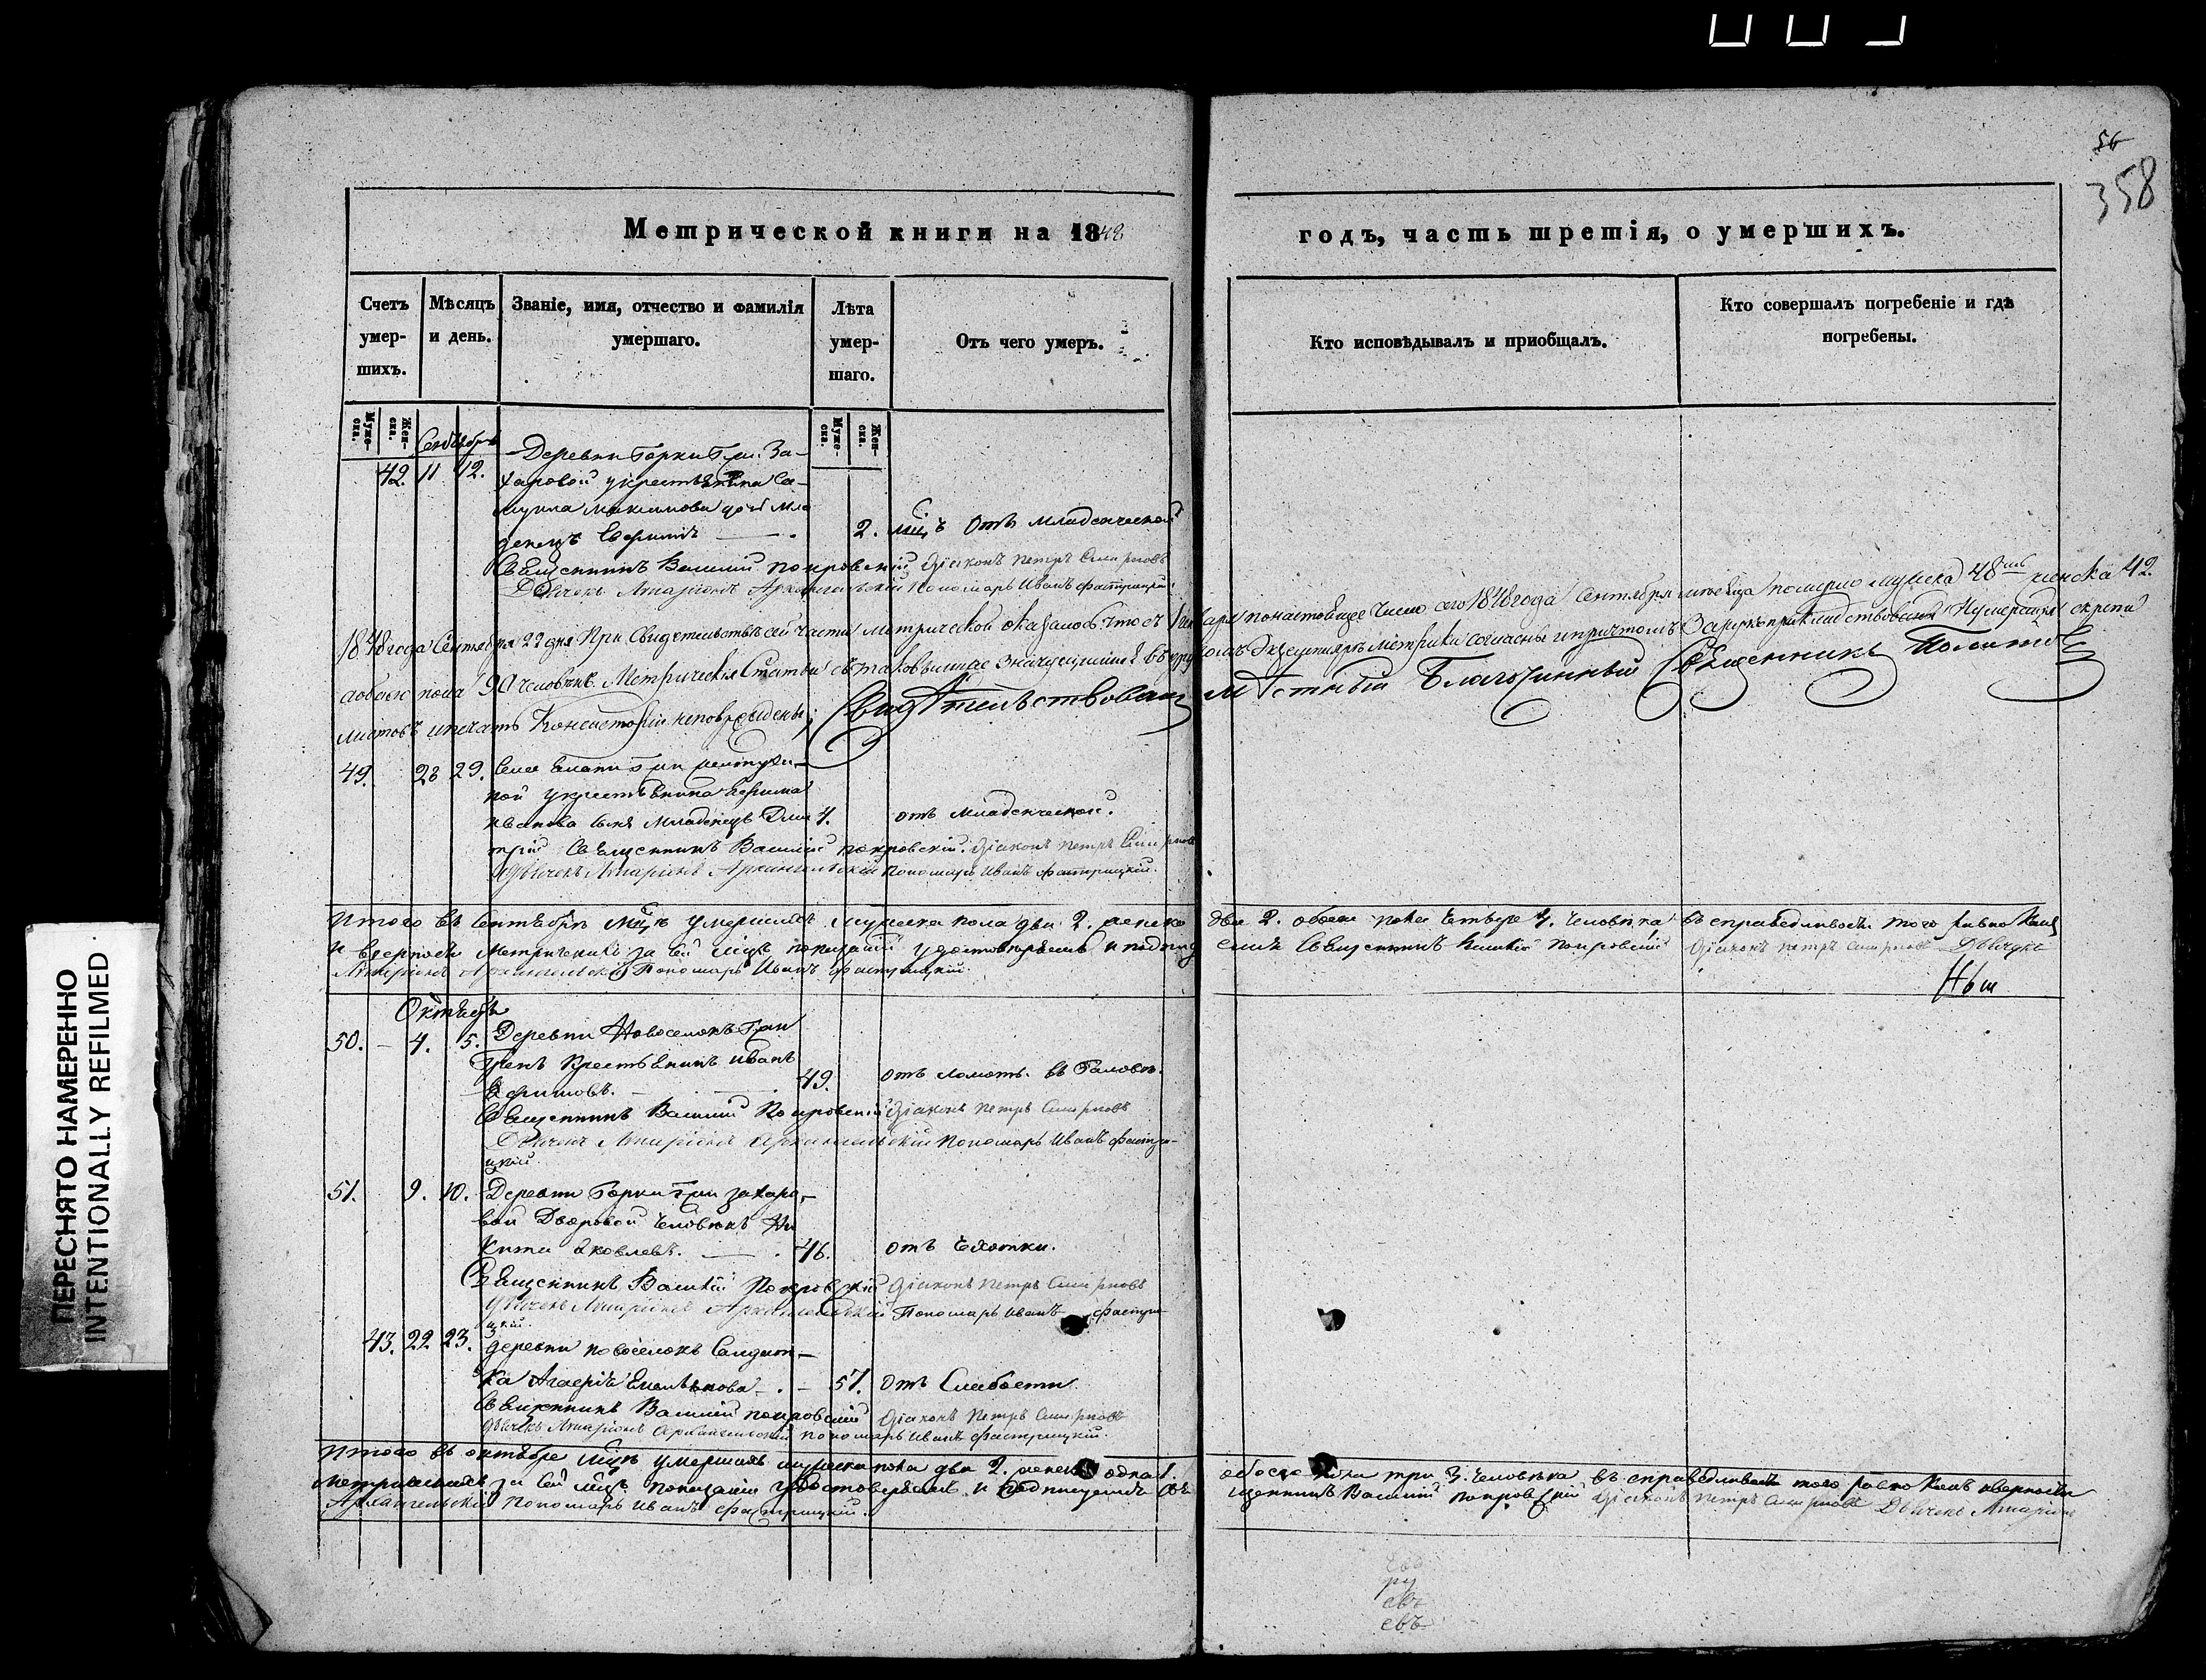 56
358
Метрической книги на 1848 годъ, часть третія, о умершихъ.
Счетъ умер-шихъ.
Мѣсяцъ и день.
Званіе, имя, отчество и фамилія умершаго.
Лѣта умер-шаго.
Отъ чего умеръ.
Кто исповѣдывалъ и приобщалъ.
Кто совершалъ погребеніе и гдѣ погребены.
Муже-ска.
Жен-ска.
Муже-ска.
Жен-ска.
Сентябрь
42. 11 12. Деревни Горки Гжи За-
харовой у крестьянина Са-
муила Максимова дочь мла
денецъ 2. мцъ Отъ младенческой
Священникъ Василій Покровскій Діаконъ Петръ Смирновъ
Дьячекъ Иларіонъ Архангельскій Пономарь Иванъ
1848 года Сентября 22 дня При Свидетельствѣ сей части Метрической оказалось что съ Генваря по настоящее число сего 1848 года Сентября месяца померло мужеска 48 женска 42.
обоего пола 90 человѣкъ. Метрическія Статьи съ таковыми же значущимися въ другомъ Экземпляре Метрики согласны и притомъ скрепа
листовъ и печать Консисторіи неповреждены; Свидѣтельствовалъ мѣстный Благочинный Священникъ
49. 28 29. Села Гжи
ной у крестьянина Ефима
Иванова сынъ младенецъ Дми 4. отъ младенческой.
трій Священникъ Василій Покровскій. Діаконъ Петръ Смирновъ
Дьячекъ Иларіонъ Архангельскій Пономарь Иванъ
Итого въ Сентябрѣ мцѣ умершихъ мужеска пола два 2. женска два 2. обоего пола четыре 4. человѣка, въ справедливости того равно какъ
и верности метрическихъ за сей мцъ показаній удостоверяемъ и подпису емъ Священникъ Василій Покровскій Діаконъ Петръ Смирновъ Дьячекъ
Иларіонъ Архангельскій Пономарь Иванъ
Октябрь
50. – 4. 5. Деревни Новоселокъ Гжи
крестьянинъ Иванъ
Ефимовъ. 49. отъ ломоты въ Голове.
Священникъ Василій Покровскій Діаконъ Петръ Смирновъ
Дьячекъ Иларіонъ Архангельскій Пономарь Иванъ
цкій.
51. 9. 10. Деревни Горки Гжи Захаро-
вой Дворовой человѣкъ Ни
кита Яковлевъ. 46. отъ Чахотки.
Священникъ Василій Покровскій Діаконъ Петръ Смирновъ
Дьячекъ Иларіонъ Архангельскій Пономарь Иванъ
цкій.
43. 22. 23. деревни Новоселокъ Солдат-
ка Емельянова – 51. Отъ Слабости.
Священникъ Василій Покровскій Діаконъ Петръ Смирновъ
Дьячекъ Иларіонъ Архангельскій Пономарь Иванъ
Итого въ октябре мцѣ умершихъ мужеска пола два 2. женска одна 1. обоего пола три 3. человѣка въ справедливости того равно какъ и верности
метрическихъ за сей мцъ показаній удостоверяемъ и подписуемъ Свя щенникъ Василій Покровскій Діаконъ Петръ Смирновъ Дьячекъ Иларіонъ
Архангельскій Пономарь Иванъ
ру
евъ
евъ
ПЕРЕСНЯТО НАМЕРЕННО
INTENTIONALLY REFILMED